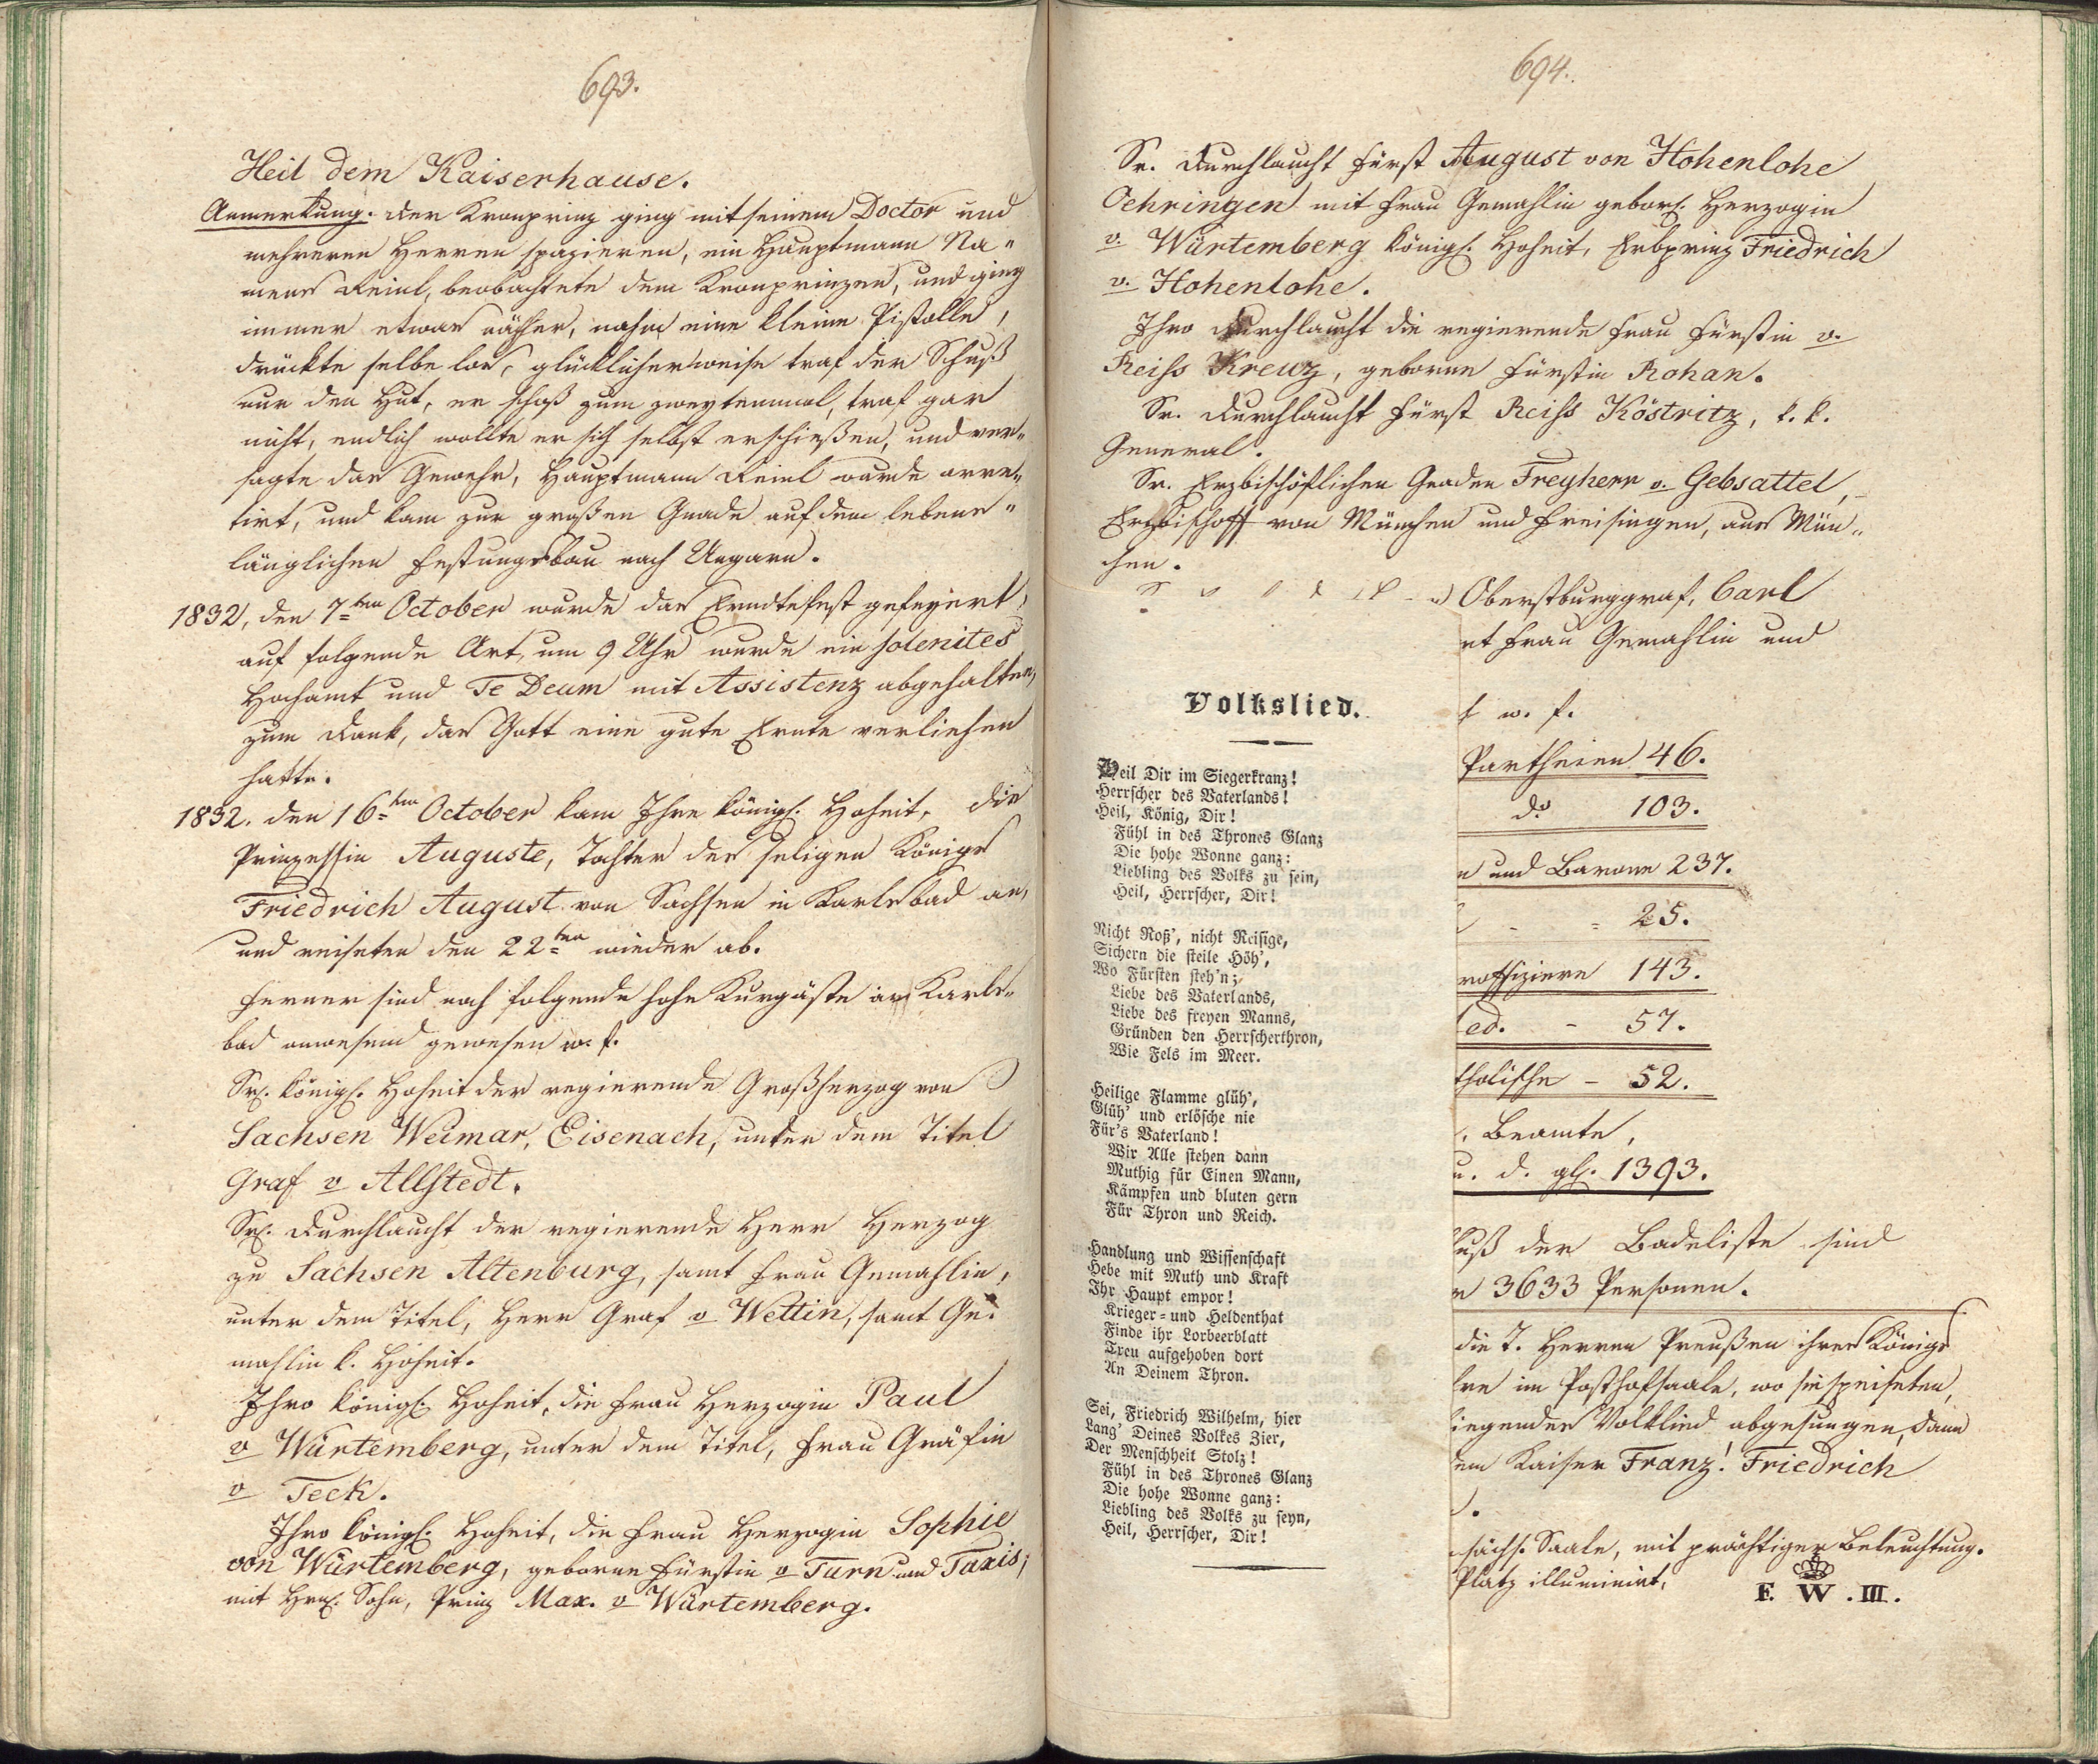 693.
Heil dem Kaiserhause.
Anmerkung. Der Kronprinz ging mit seinem Doctor und
mehreren Herren spazieren, ein Hauptmann Na„
mens Reinl, beobachtete dem Kronprinzen, und ging
immer etwas näher, nahm eine kleine Pistolle,
drückte selbe los, glücklicherweise traf der Schuß
nur den Hut, er schoß zum zweytenmal, traf gar
nicht, endlich wollte er sich selbst erschießen, und ver„
sagte das Gewehr, Hauptmann Reinl wurde arre„
tirt, und kam zur großen Gnade auf dem lebens„
länglichen Festungsbau nach Ungarn.
1832, den 7ten October wurde das Erndtefest gefeyert,
auf folgende Art, um 9 Uhr wurde ein solenites
Hochamt und Te Deum mit Assistenz abgehalten,
zum Dank, das Gott eine gute Ernte verliehen
hatte.
1832. den 16ten October kam Ihre königl. Hoheit, die
Prinzessin Auguste, Tochter des seligen Königs
Friedrich August von Sachsen in Karlsbad an,
und reiseten den 22ten wieder ab.
Ferner sind noch folgende hohe Kurgäste in Karls„
bad anwesend gewesen w. f.
Sr. königl. Hoheit der regierende Großherzog von
Sachsen Weimar, Eisenach, unter dem Titel
Graf v Allstedt.
Sr. Durchlaucht der regierende Herr Herzog
zu Sachsen Altenburg, samt Frau Gemahlin,
unter dem Titel, Herr Graf v Wettin, samt Ge„
mahlin k. Hoheit.
Ihro königl. Hoheit, die Frau Herzogin Paul
v Würtemberg, unter dem Titel, Frau Gräfin
v Teck.
Ihro königl. Hoheit, die Frau Herzogin Sophie
von Würtemberg, geborne Fürstin v Turn und Taxis,
mit Hrn. Sohn, Prinz Max. v Würtemberg.
694.
Sr. Durchlaucht Fürst August von Hohenlohe
Oehringen mit Frau Gemahlin gebor. Herzogin
v. Würtemberg königl. Hoheit, Erbprinz Friedrich
v. Hohenlohe.
Ihro Durchlaucht die regierende Frau Fürstin v.
Reiss Kreuz, geborne Fürstin Rohan.
Sr. Durchlaucht Fürst Reiss Köstritz, k. k.
General.
Sr. Erzbischöflichen Gnaden Freyherr v. Gebsattel,
Erzbischoff von München und Freisingen, aus Mün„
chen.
Oberstburggraf, Carl
Frau Gemahlin und
w. f.
Partheien 46.
do 103.
und Barone 237.
25.
roffiziere 143.
ed. - 57.
tholische - 52.
Beamte,
u. d. gl. 1393.
uß der Badeliste sind
3633 Personen.
die T. Herren Preußen ihres Königs
im Posthofsaale, wo sie speiseten,
iegendes Volklied abgesungen, dann
em Kaiser Franz! Friedrich
sächs. Saale, mit prächtiger Beleuchtung.
Platz illuminirt,
F. W. III.
Volkslied.
Heil Dir im Siegerkranz!
Herrscher des Vaterlands!
Heil, König, Dir!
Fühl in des Thrones Glanz
Die hohe Wonne ganz:
Liebling des Volks zu sein,
Heil, Herrscher, Dir!
Nicht Roß', nicht Reisige,
Sichern die steile Höh',
Wo Fürsten steh'n;
Liebe des Vaterlands,
Liebe des freyen Manns,
Gründen den Herrscherthron,
Wie Fels im Meer.
Heilige Flamme glüh',
Glüh' und erlösche nie
Für's Vaterland!
Wir Alle stehen dann
Muthig für Einen Mann,
Kämpfen und bluten gern
Für Thron und Reich.
Handlung und Wissenschaft
Hebe mit Muth und Kraft
Ihr Haupt empor!
Krieger- und Heldenthat
Finde ihr Lorbeerblatt
Treu aufgehoben dort
An Deinem Thron.
Sei, Friedrich Wilhelm, hier
Lang' Deines Volkes Zier,
Der Menschheit Stolz!
Fühl in des Thrones Glanz
Die hohe Wonne ganz:
Liebling des Volks zu seyn,
Heil, Herrscher, Dir!